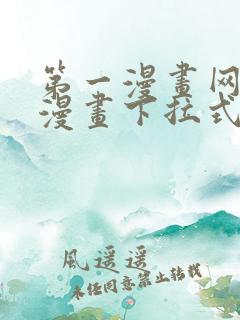 第一漫畫网
漫畫下拉式
風遥遥
未经同意禁止转载